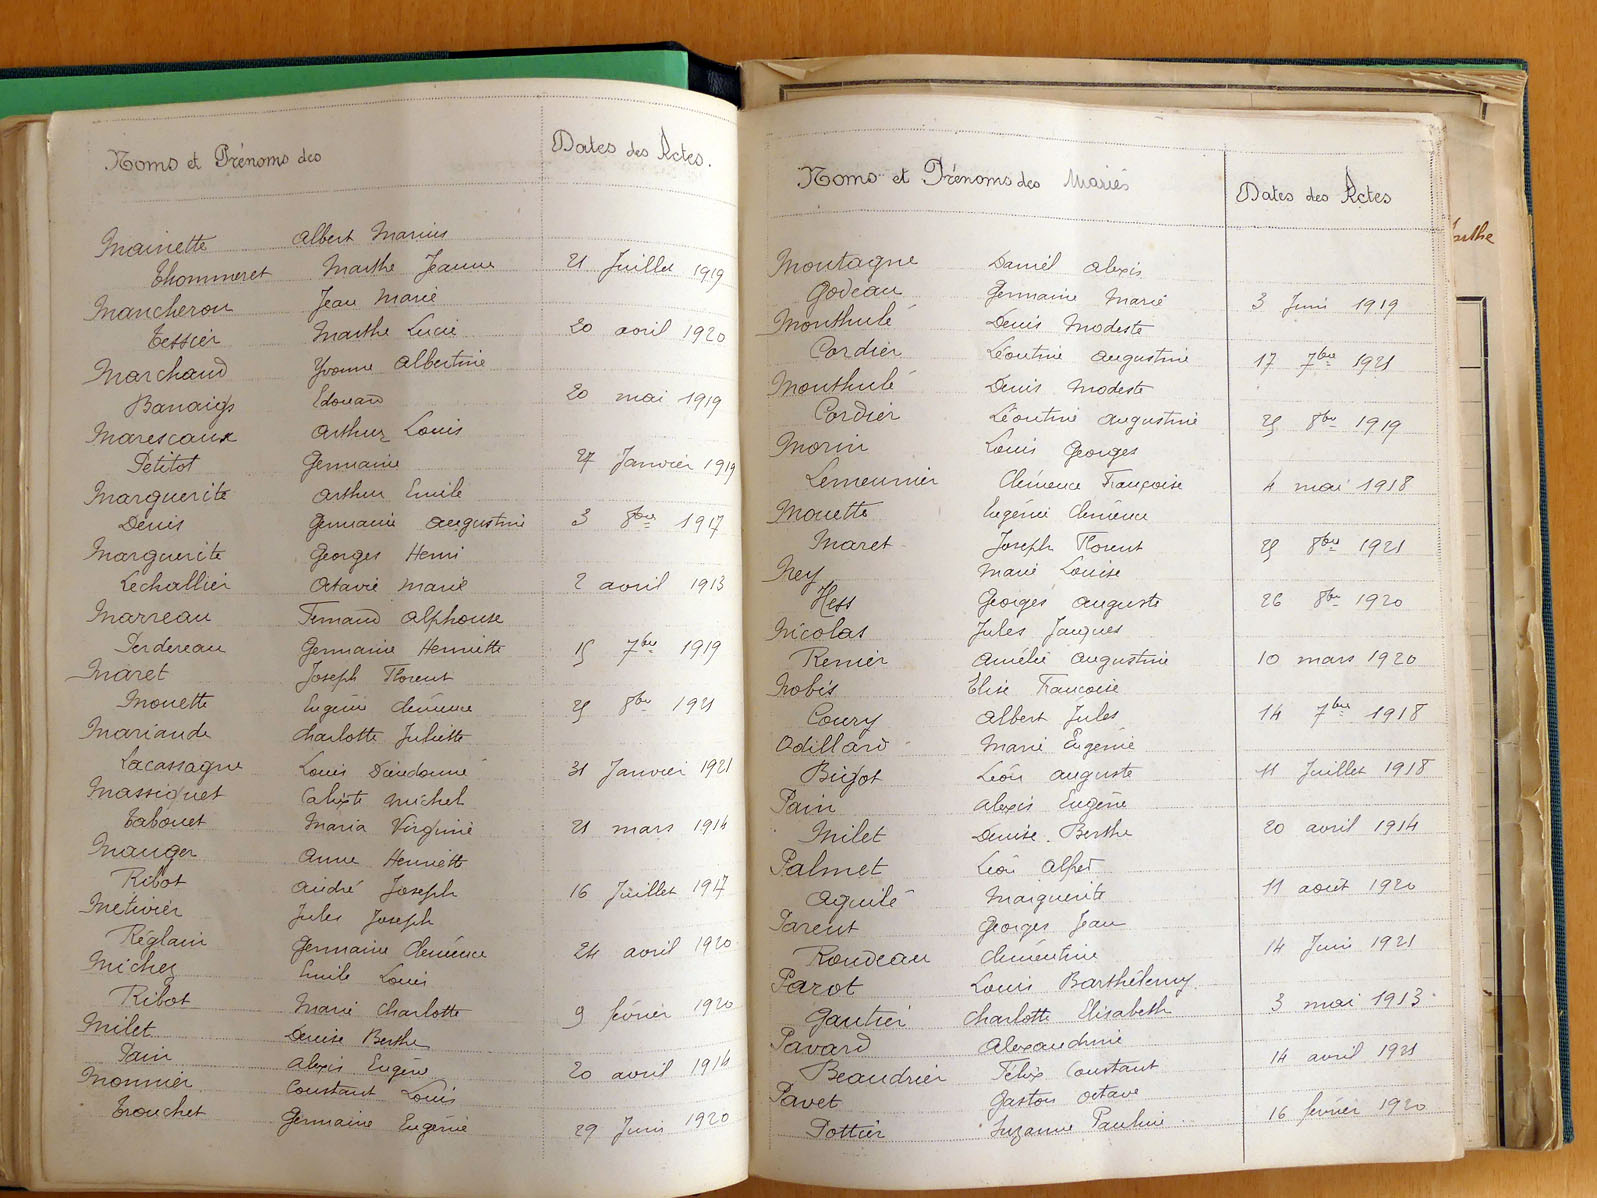 Noms et Prénoms des
Dates des Actes.
Mainette Albert Marius
Thommeret Marthe Jeanne 21 Juillet 1919
Mancheron Jean Marie
Tessier Marthe Lucie 20 avril 1920
Marchand Yvonne Albertine
Banaigs Edouard 20 mai 1919
Marescaux Arthur Louis
Petitot Germaine 27 Janvier 1919
Marguerite Arthur Emile
Denis Germaine Augustine 3 8bre 1917
Marguerite Georges Henri
Lechallier Octavie Marie 2 avril 1913
Marreau Fernand Alphonse
Perdereau Germaine Henriette 15 7bre 1919
Maret Joseph Florent
Mouette Eugénie Clémence 25 8bre 1921
Mariaude Charlotte Juliette
Lacassagne Louis Dieudonné 31 Janvier 1921
Massiquet Calixte Michel
Tabouet Maria Virginie 21 mars 1914
Mauger Anne Henriette
Ribot André Joseph 16 Juillet 1917
Métivier Jules Joseph
Réglain Germaine Clémence 24 avril 1920
Michez Emile Louis
Ribot Marie Charlotte 9 février 1920
Milet Denise Berthe
Pain Alexis Eugène 20 avril 1914
Monnier Constant Louis
Trouchet Germaine Eugénie 29 Juin 1920
Noms et Prénoms des Mariés
Dates des Actes
Montagne Daniel Alexis
Godeau Germaine Marie 3 Juin 1919
Monthulé Denis Modeste
Cordier Léontine Augustine 17 7bre 1921
Monthulé Denis Modeste
Cordier Léontine Augustine 25 8bre 1919
Morin Louis Georges
Lemeunier Clémence Françoise 4 mai 1918
Mouette Eugénie Clémence
Maret Joseph Florent 25 8bre 1921
Ney Marie Louise
Hess Georges Auguste 26 8bre 1920
Nicolas Jules Jacques
Renier Amélie Augustine 10 mars 1920
Nobis Elise Françoise
Coury Albert Jules 14 7bre 1918
Odillard Marie Eugénie
Bigot Léon Auguste 11 Juillet 1918
Pain Alexis Eugène
Milet Denise Berthe 20 avril 1914
Palmet Léon Alfred
Aguilé Marguerite 11 août 1920
Parent Georges Jean
Rondeau Clémentine 14 Juin 1921
Parot Louis Barthélemy
Gautier Charlotte Elisabeth 3 mai 1913
Pavard Alexandrine
Beaudrier Félix Constant 14 avril 1921
Pavet Gaston Octave
Pottier Suzanne Pauline 16 février 1920